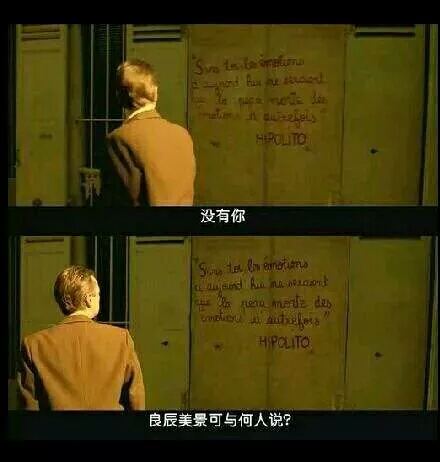 "Sans toi, les émotions
d'aujourd'hui ne seraient
que la peau morte des
émotions d'autrefois"
HIPOLITO
没有你
"Sans toi, les émotions
d'aujourd'hui ne seraient
que la peau morte des
émotions d'autrefois"
HIPOLITO
良辰美景可与何人说?